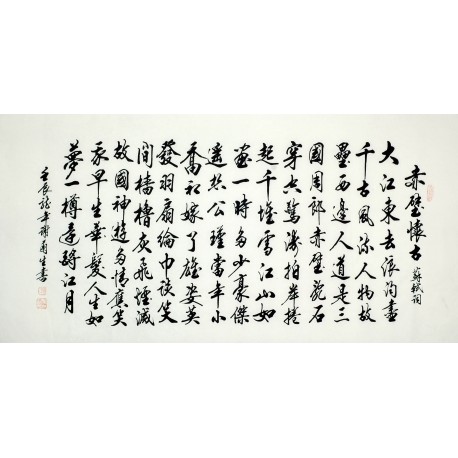 赤壁懷古 蘇軾詞
大江東去浪淘盡
千古風流人物故
壘西邊人道是三
國周郎赤壁亂石
穿空驚濤拍岸捲
起千堆雪江山如
畫一時多少豪傑
遥想公瑾當年小
喬初嫁了雄姿英
發羽扇綸巾談笑
間檣櫓灰飛煙滅
故國神遊多情應笑
我早生華髮人生如
夢一樽還酹江月
壬辰龍年謝生書